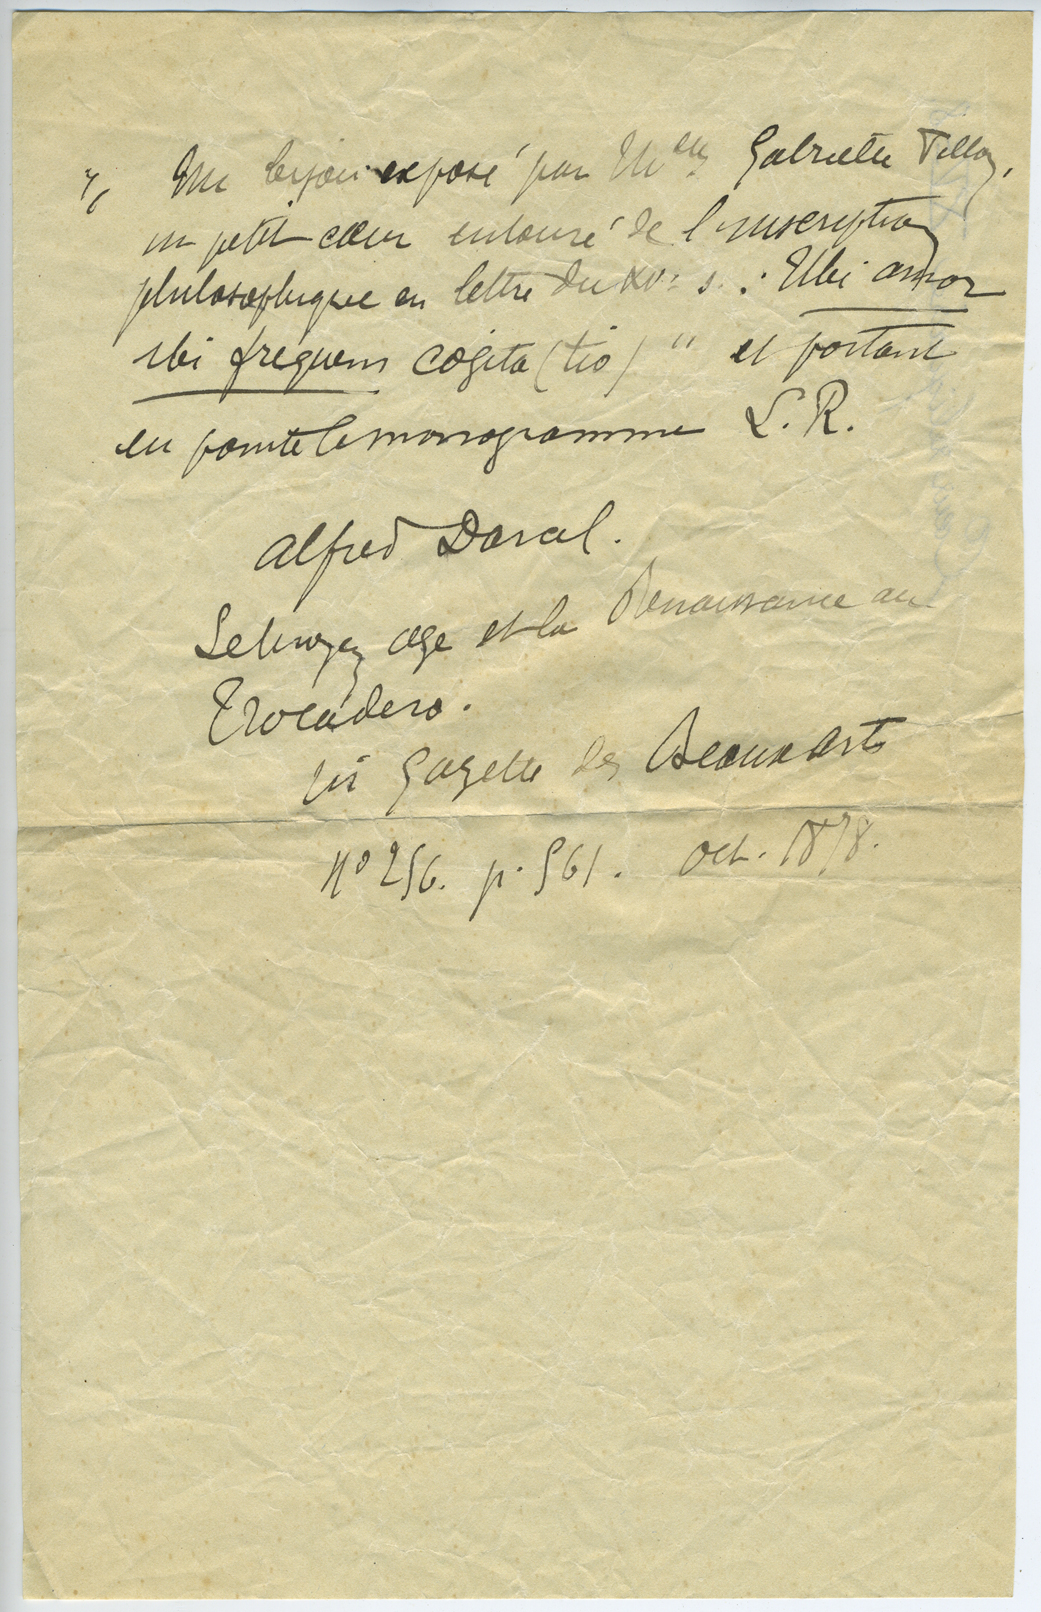 Un bijou exposé par M^elle Gabrielle Filloz,
un petit cœur entouré de l'inscription
philosophique en lettre du XVe s. : Ubi amor
ibi frequens cogita(tio)" et portant
en pointe le monogramme L. R.
Alfred Darcel.
Le moyen age et la Renaissance au
Trocadero.
in Gazette des Beaux Arts
No 256. p. 561. Oct. 1878.